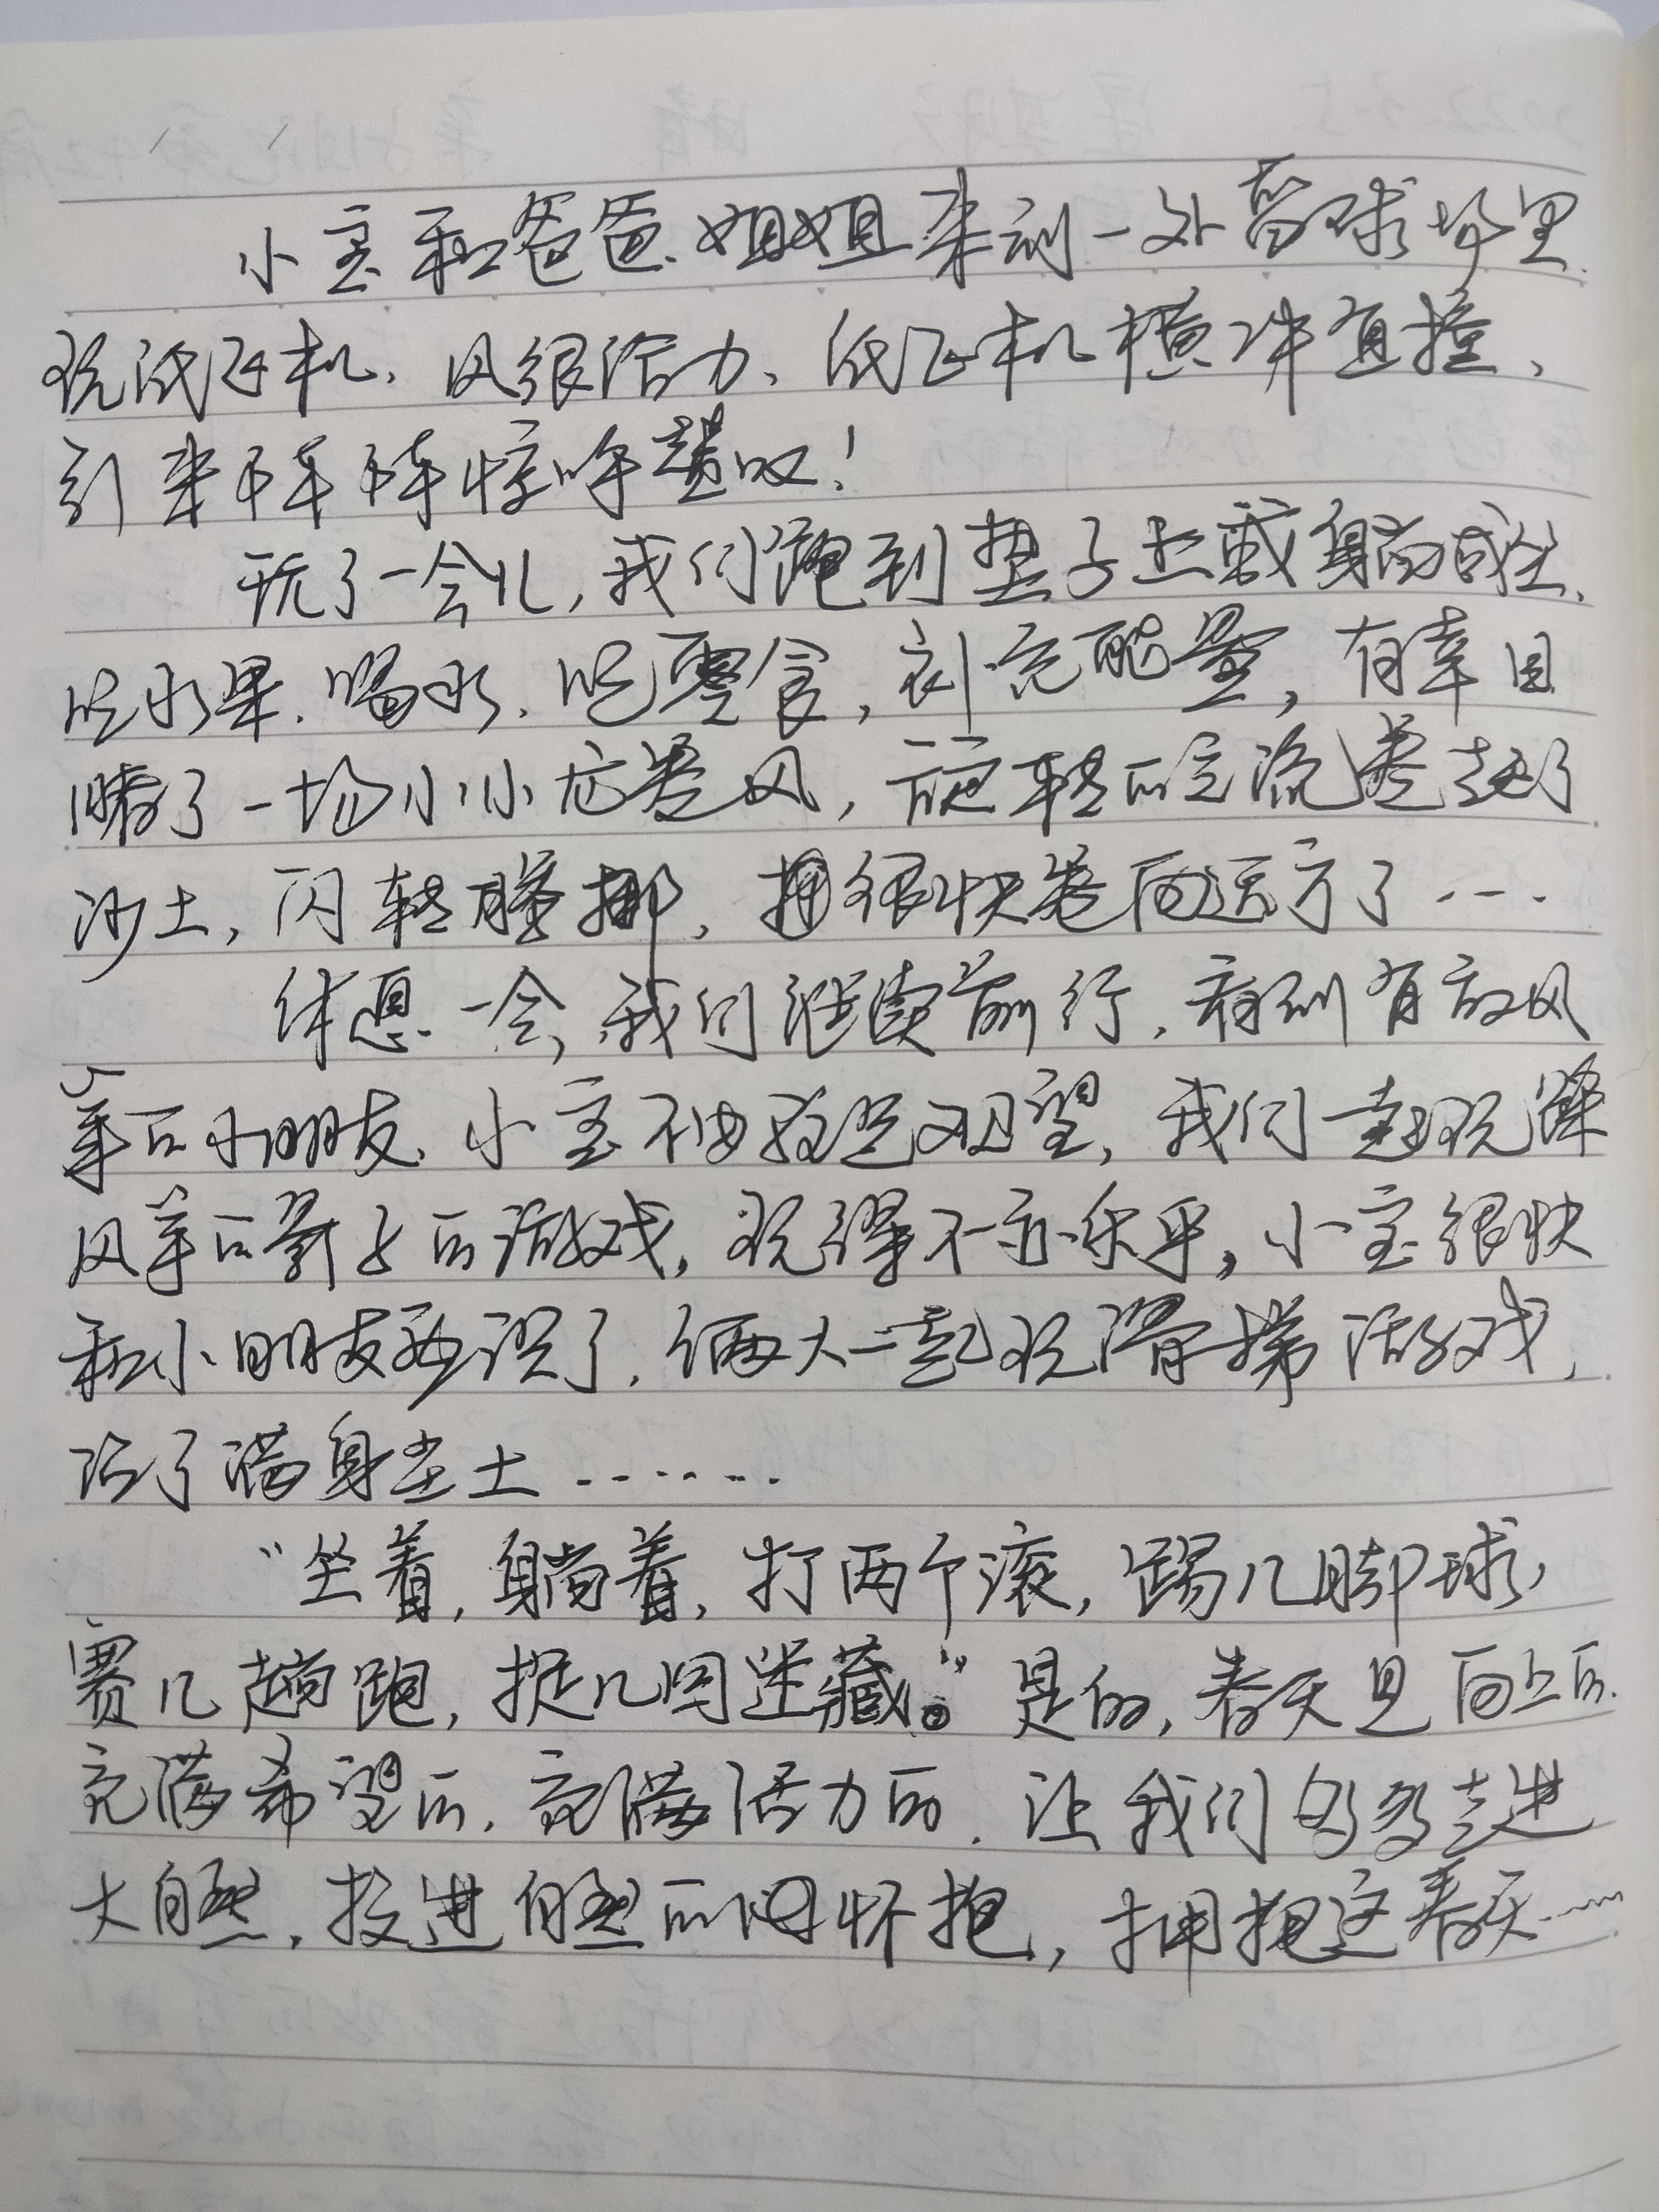 小宝和爸爸、姐姐来到一处篮球场里
玩纸飞机，风很给力，纸飞机横冲直撞，
引来阵阵惊呼赞叹！
玩了一会儿，我们跑到垫子上或躺或坐，
吃水果、喝水、吃零食，补充能量，有幸目
睹了一场小小龙卷风，旋转的气流卷起了
沙土，闪转腾挪，很快卷向远方了……
休息一会，我们继续前行，看到有放风
筝的小朋友，小宝不由驻足观望，我们一起玩踩
风筝的影子的游戏，玩得不亦乐乎，小宝很快
和小朋友熟识了，俩人一起玩滑梯游戏，
沾了满身尘土……
“坐着，躺着，打两个滚，踢几脚球，
赛几趟跑，捉几回迷藏。”是的，春天是向上的，
充满希望的，充满活力的，让我们多多走进
大自然，投进自然的怀抱，拥抱这春天……